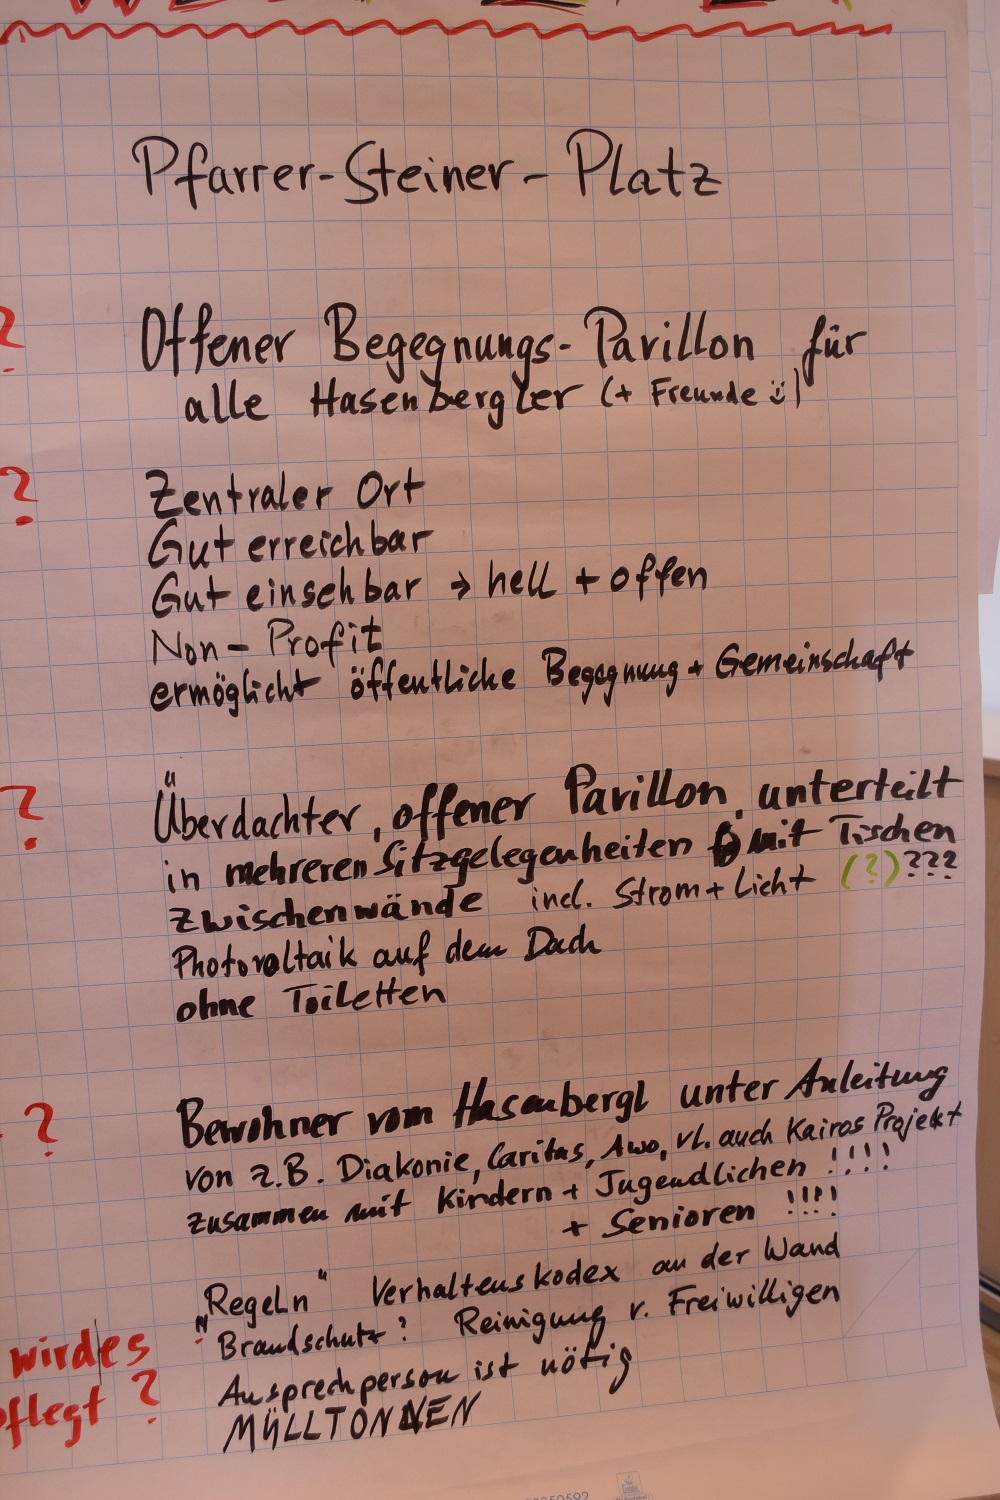 Pfarrer-Steiner-Platz
?
Offener Begegnungs-Pavillon für
alle Hasenbergler (+ Freunde ☺)
?
Zentraler Ort
Gut erreichbar
Gut einsehbar → hell + offen
Non-Profit
ermöglicht öffentliche Begegnung + Gemeinschaft
?
Überdachter, offener Pavillon, unterteilt
in mehreren Sitzgelegenheiten mit Tischen
Zwischenwände incl. Strom + Licht (?) ???
Photovoltaik auf dem Dach
ohne Toiletten
?
Bewohner vom Hasenbergl unter Anleitung
von z.B. Diakonie, Caritas, Awo, vl. auch Kairos Projekt
zusammen mit Kindern + Jugendlichen !!!!
+ Senioren !!!!
"Regeln" Verhaltenskodex an der Wand
Brandschutz? Reinigung v. Freiwilligen
wird es
Ansprechperson ist nötig
pflegt ?
MÜLLTONNEN